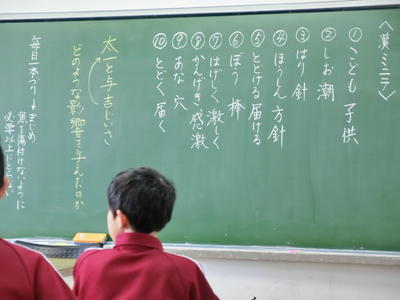 〈漢ミニテ〉
① こども 子供
② しお 潮
③ はり 針
④ ほうしん 方針
⑤ とどける 届ける
⑥ ぼう 棒
⑦ はげしく 激しく
⑧ かんげき 感激
⑨ あな 穴
⑩ とどく 届く
太一と与吉じいさ
どのような影響を与えたのか
毎日一本づり→まじめ
魚を傷付けないように